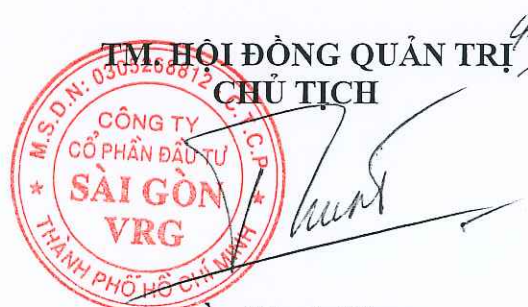 TM. HỘI ĐỒNG QUẢN TRỊ
CHỦ TỊCH
M.S.D.N: 0305268812 - C.T.C.P
CÔNG TY
CỔ PHẦN ĐẦU TƯ
SÀI GÒN
VRG
THÀNH PHỐ HỒ CHÍ MINH